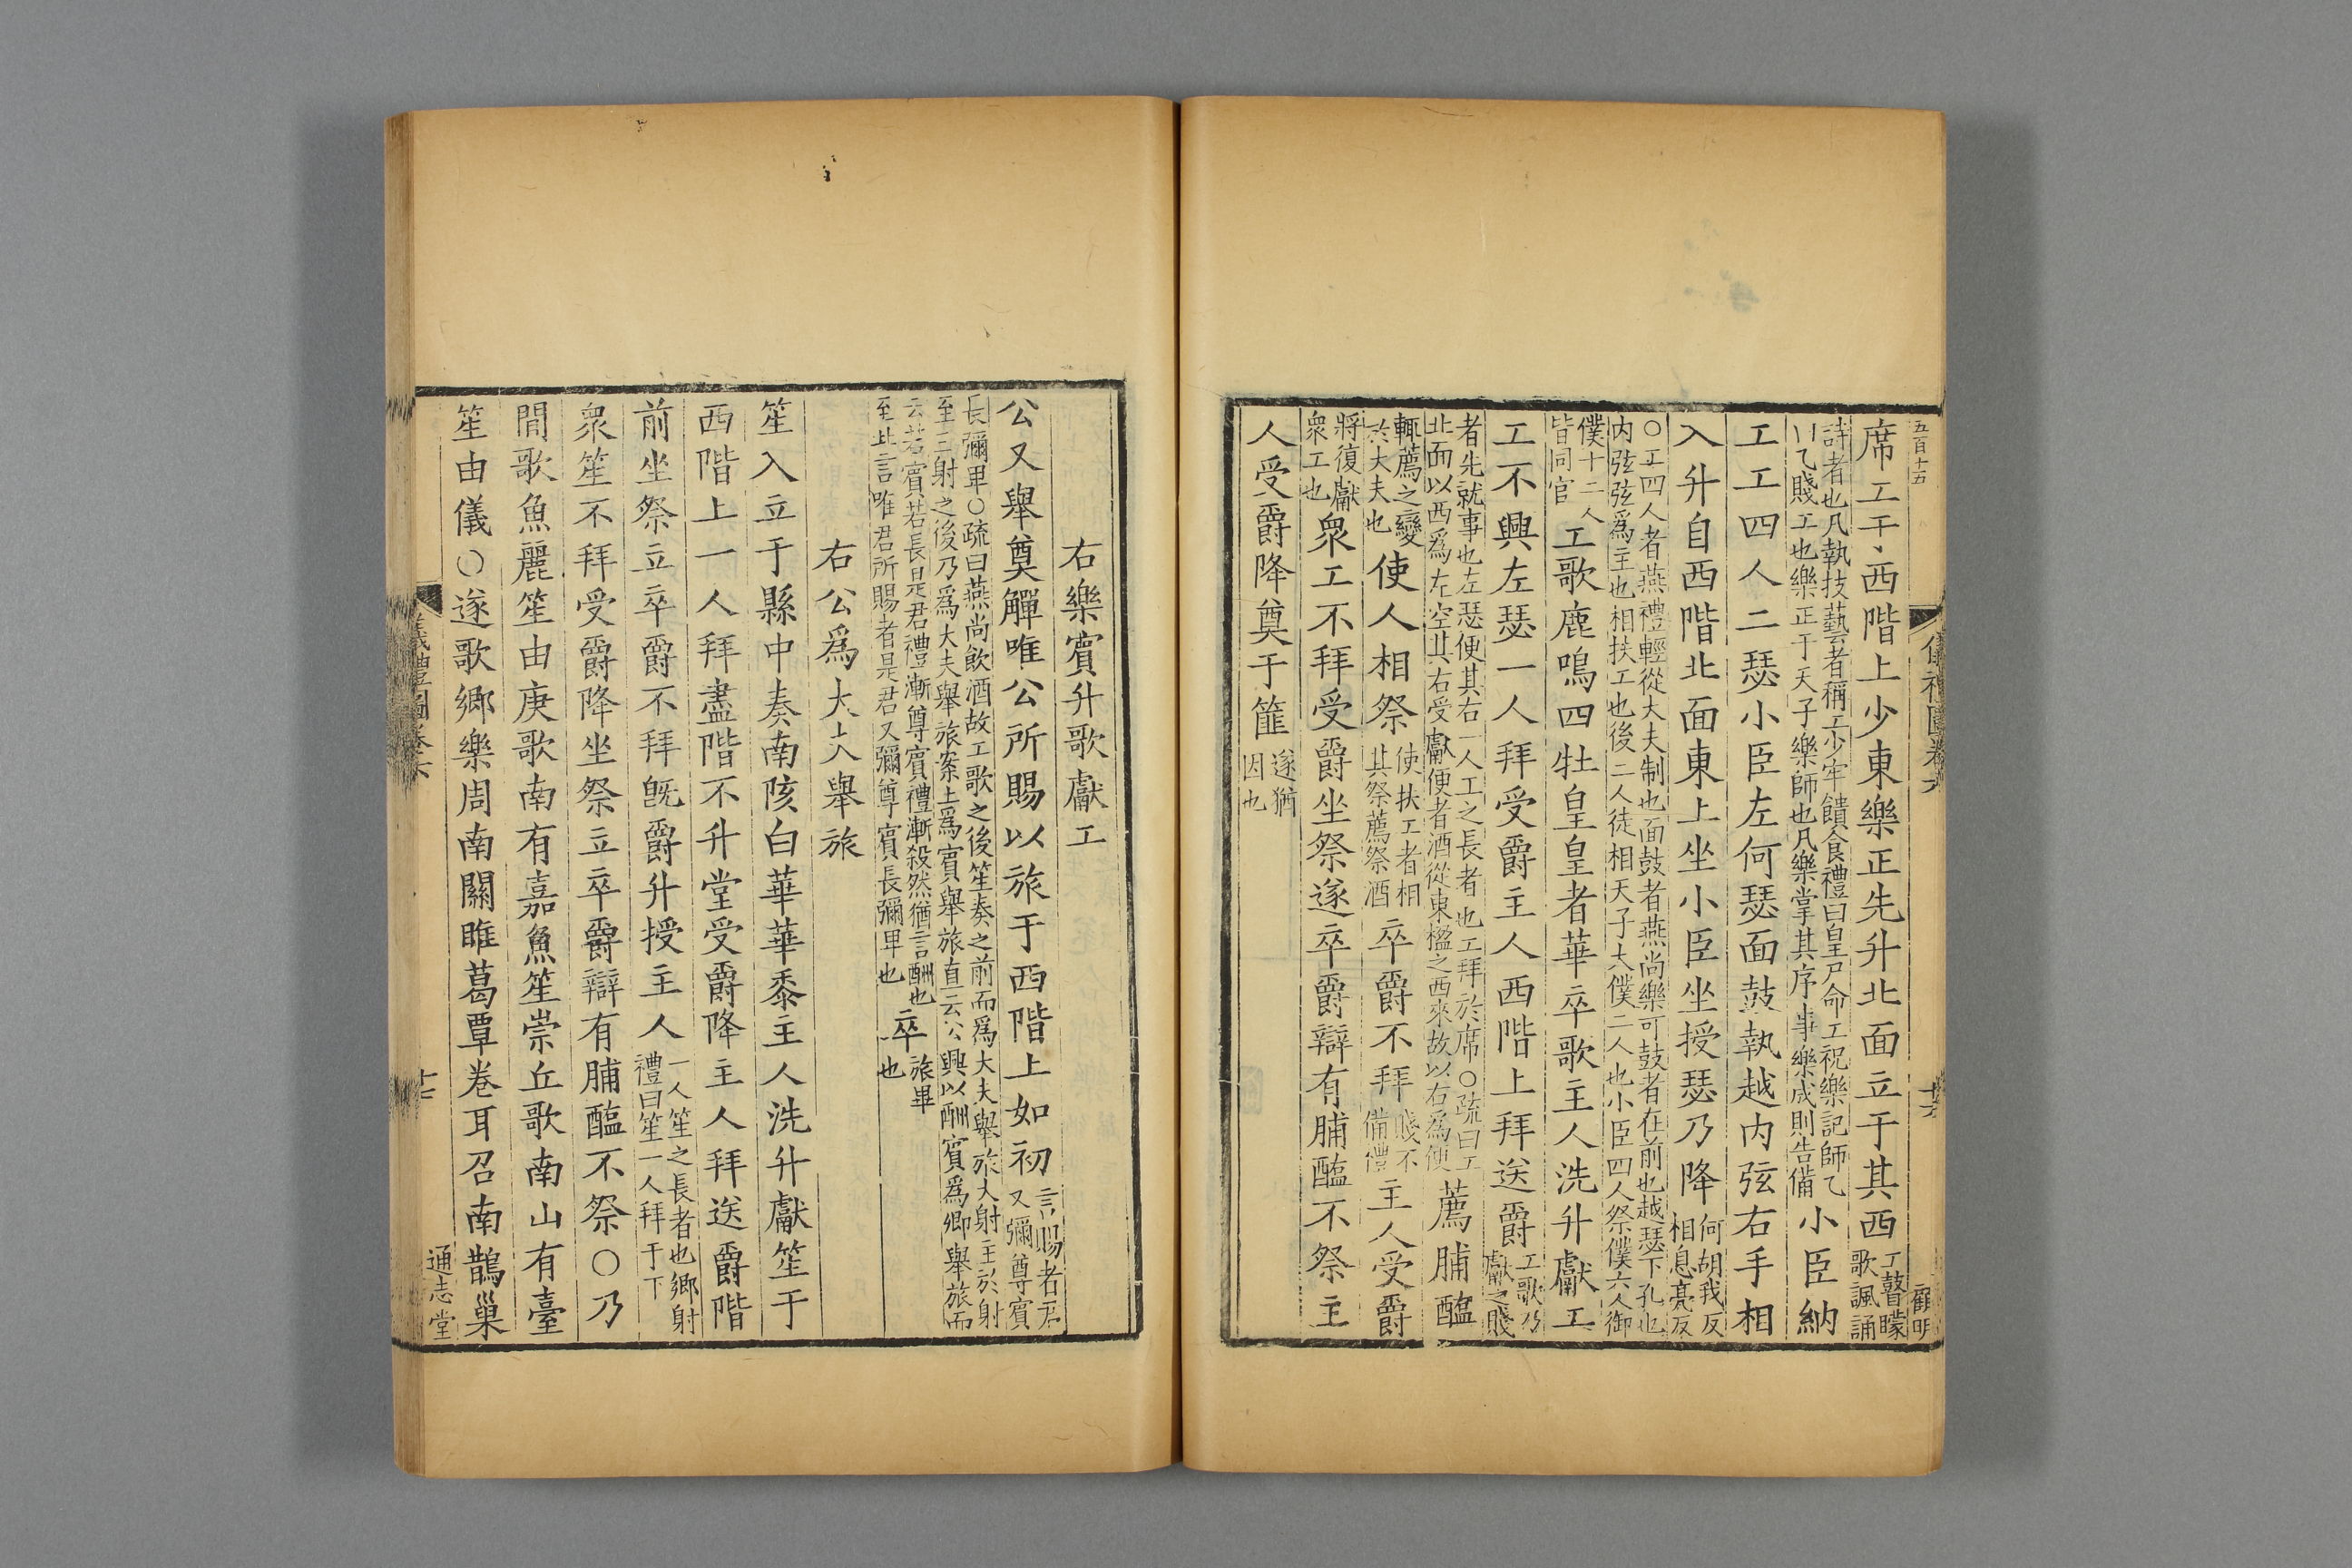 五百十五
儀禮圖卷六
十六
顧明
席工于西階上少東樂正先升北面立于其西
工瞽矇
歌諷誦
詩者也凡執技藝者稱工少牢饋食禮曰皇尸命工祝樂記師乙
曰乙賤工也樂正于天子樂師也凡樂掌其序事樂成則告備
小臣納
工工四人二瑟小臣左何瑟面鼓執越内弦右手相
入升自西階北面東上坐小臣坐授瑟乃降
何胡我反
相息亮反
○工四人者燕禮輕從大夫制也面鼓者燕尚樂可鼓者在前也越瑟下孔也
内弦弦為主也相扶工也後二人徒相天子大僕二人也小臣四人祭僕六人御
僕十二人
皆同官
工歌鹿鳴四牡皇皇者華卒歌主人洗升獻工
工不興左瑟一人拜受爵主人西階上拜送爵
工歌乃
獻之賤
者先就事也左瑟便其右一人工之長者也工拜於席○疏曰工
北面以西為左空其右受獻便者酒從東楹之西來故以右為便
薦脯醢
輒薦之變
於大夫也
使人相祭
使扶工者相
其祭薦祭酒
卒爵不拜
賤不
備禮
主人受爵
將復獻
衆工也
衆工不拜受爵坐祭遂卒爵辯有脯醢不祭主
人受爵降奠于篚
遂猶
因也
右樂賓升歌獻工
公又舉奠觶唯公所賜以旅于西階上如初
言賜者君
又彌尊賓
長彌卑○疏曰燕尚飲酒故工歌之後笙奏之前而為大夫舉旅大射主於射
至三射之後乃為大夫舉旅案上為賓舉旅直云公興以酬賓為卿舉旅而
云若賓若長是君禮漸尊賓禮漸殺然猶言酬也
至此言唯君所賜者是君又彌尊賓長彌卑也
卒
旅畢
也
右公為大夫舉旅
笙入立于縣中奏南陔白華華黍主人洗升獻笙于
西階上一人拜盡階不升堂受爵降主人拜送爵階
前坐祭立卒爵不拜旣爵升授主人
一人笙之長者也鄉射
禮曰笙一人拜于下
衆笙不拜受爵降坐祭立卒爵辯有脯醢不祭○乃
間歌魚麗笙由庚歌南有嘉魚笙崇丘歌南山有臺
笙由儀○遂歌鄉樂周南關雎葛覃卷耳召南鵲巢
儀禮圖卷六
十七
通志堂